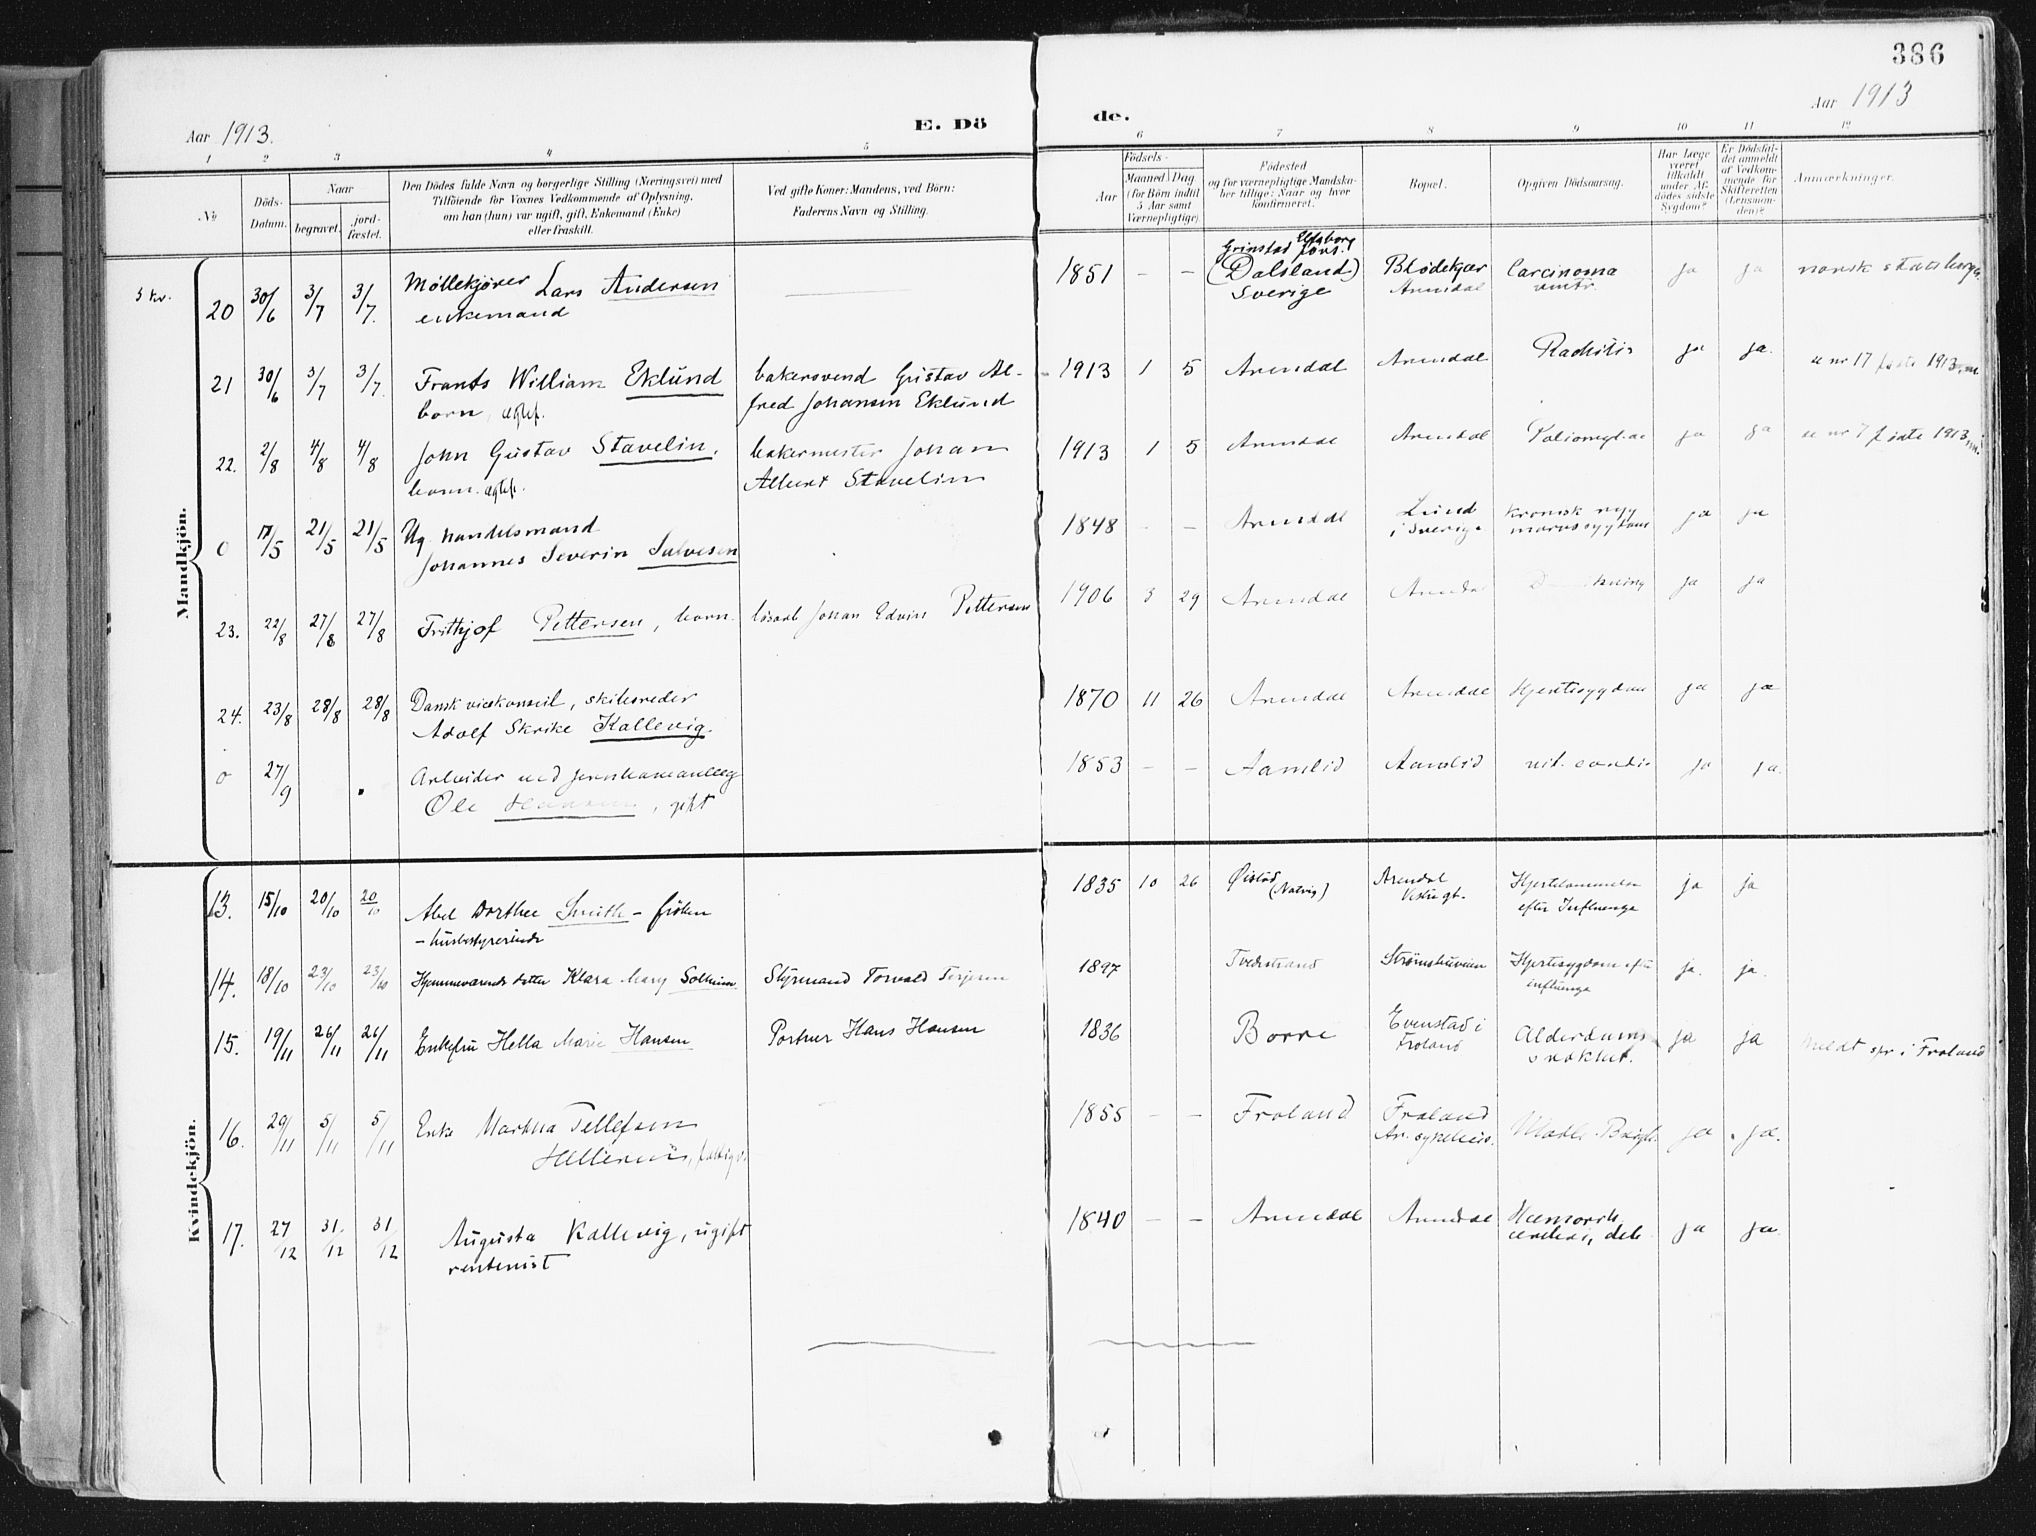 386
Aar 1913.
E. Dö
de.
Aar 1913
1 2 3 4 5 6 7 8 9 10 11 12
No
Döds-
Datum.
Naar
begravet.
jord-
fæstet.
Den Dödes fulde Navn og borgerlige Stilling (Næringsvei) med
Tilföiende for Voxnes Vedkommende af Oplysning,
om han (hun) var ugift, gift, Enkemand (Enke)
eller fraskilt.
Ved gifte Koner: Mandens, ved Börn:
Faderens Navn og Stilling.
Födsels-
Aar
Maaned Dag
(for Börn indtil
5 Aar samt
Værnepligtige).
Födested
og for værnepligtige Mandska-
ber tillige: Naar og hvor
konfirmeret.
Bopæl.
Opgiven Dödsaarsag.
Har Læge
været
tilkaldt
under Af-
dödes sidste
Sygdom?
Er Dödsfal-
det anmeldt
af Vedkom-
mende for
Skifteretten
(Lensman-
den)?
Anmærkninger.
Mandkjön.
20 30/6 3/7 3/7. Møllekjører Lars Andersen
enkemand
1851 - - Grinstad Elfsborg
(Dalsland)
Sverige
Blødekjær
Arendal
Carcinoma
ja ja norsk statsborger
21 30/6 3/7 3/7. Frants William Eklund
barn, ægtef.
bakersvend Gustav Al-
fred Johansen Eklund
1913 1 5 Arendal Arendal Rachitis ja ja. se nr 17 fødte 1913
22. 2/8 4/8 4/8 John Gustav Stavelin,
barn. ægtef.
bakermester Johan
Albert Stavelin
1913 1 5 Arendal Arendal ja ja se nr 7 fødte 1913
0 17/5 21/5 21/5 Ug. handelsmand
Johannes Severin Salvesen
1848 - - Arendal Lund
i Sverige
kronisk ryg
marvssygdom
ja ja
23. 22/8 27/8 27/8 Frithjof Pettersen, barn.
løsarb Johan Edvin Pettersen
1906 3 29 Arendal Arendal ja ja
24. 23/8 28/8 28/8 Dansk vicekonsul, skibsreder
Adolf Skrike Kallevig.
1870 11 26 Arendal Arendal Hjertesygdom ja ja
0 27/9 Arbeider ved jernbaneanlæg
Ole Hansen, gift
1853 - - Aamlid Aamlid vit. cordis ja ja.
Kvindekjön.
13. 15/10 20/10 20/10 Abel Dorthee Smith - frøken
- husbestyrerinde
1835 10 26 Øistad
(Natvig)
Arendal
Vestregt.
Hjertelammelse
efter Influenza
ja ja
14. 18/10 23/10 23/10 Hjemmeværende datter Klara Mary Solheim.
Styrmand Torvald Terjesen
1897 Tvedestrand Strømsbuveien Hjertesygdom efter
influenza
ja. ja.
15. 19/11 26/11 26/11 Enkefru Hella Marie Hansen
Portner Hans Hansen
1836 Borre Evenstad i
Froland
Alderdoms-
svakhet.
ja ja Meldt spr i Froland
16. 29/11 5/11 5/11 Enke Martha Tellefsen
1855 - - Froland Froland
Ar. sykehus.
ja ja.
17. 27/12 31/12 31/12 Augusta Kallevig, ugift
rentenist
1840 - - Arendal Arendal Hæmorrh.
ja ja.